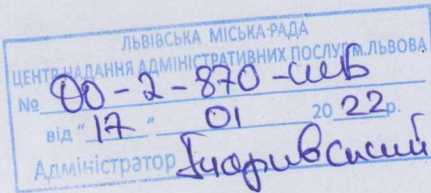 ЛЬВІВСЬКА МІСЬКА РАДА
ЦЕНТР НАДАННЯ АДМІНІСТРАТИВНИХ ПОСЛУГ М.ЛЬВОВА
№ 00-2-870-
від "17" 01 2022р.
Адміністратор